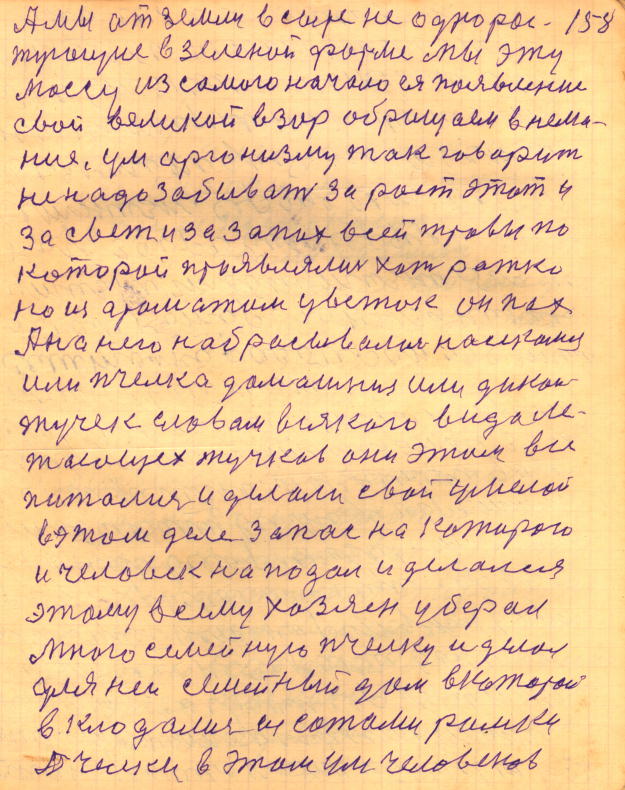 Амы от земли всыре не однорас- 158
тующие взеленой форме мы эту
массу из самого начало ея появление
свой великой взор обращаем внема-
ние, ум организму так говорит
ненадо забывать за рост этот и
за свет и за запах всей травы по
которой проявлялия хоть ратко
но из ароматом цветок он пах
Ана него набрасывалия насикомия
или пчелка домашния или дикои
жучек словам всякого вида ле-
тающех жучков они этим все
питалия и делали свой умелой
вэтом деле запас на которого
и человек нападал и делался
этому всему хозяен уберал
многосемейную пчелку и делал
для неи семейный дом вкоторой
вклодалия из сотами рамки
Пчелки в этом ум человеков